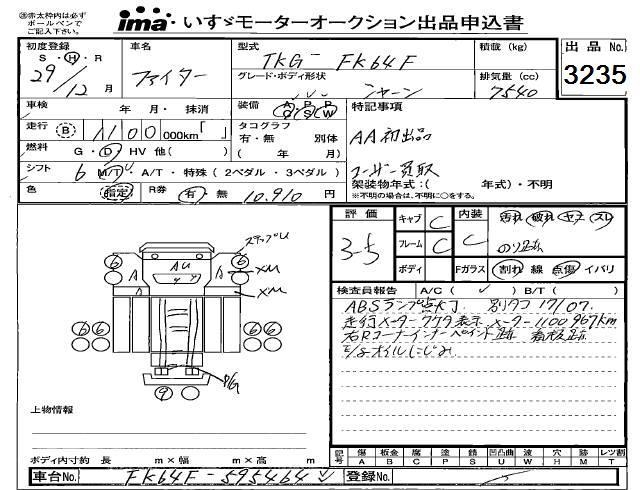 ㊟赤太枠内は必ず
ボールペンで
ご記入下さい。
ima・いすゞモーターオークション出品申込書
初度登録 車名 型式 TKG- FK64F 積載(kg) 出品No.
S・H・R
29/12月 ファイター グレード・ボディ形状 排気量(cc) 3235
7540
車検 年 月・抹消 装備 AC PS PW 特記事項
走行 B 1100 000km「 」 タコグラフ AA初出品
有・無 別体
燃料 G・D HV 他( ) ( 年 月) ユーザー買取
シフト 6 M/T・A/T・特殊(2ペダル・3ペダル) 架装物年式:( 年式)・不明
※不明の場合は、不明に○をする。
色 指定 R券 有・無 10,910円
評価 キャブ C 内装 汚れ 破れ ヤケ スレ
3-5 フレーム C C のり跡
ボディ Fガラス 割れ 線 点傷 イバリ
ステップU
6 6 A AU A XM
XM
検査員報告 A/C( ✓ ) B/T( )
ABSランプ点灯 別タコ 17/07.
走行メーター ククタ表示 メーター1100967km
右Rコーナーインナーペイント跡 看板跡
E/gオイルにじみ
6 6 6 6
P/G
9
上物情報
ボディ内寸約 長 m×幅 m×高 m
記号 傷A 板金B 腐C 塗P 錆S 凹凸曲U 波W 穴H 跡M レツ割T
車台No. FK64F-595464 登録No.